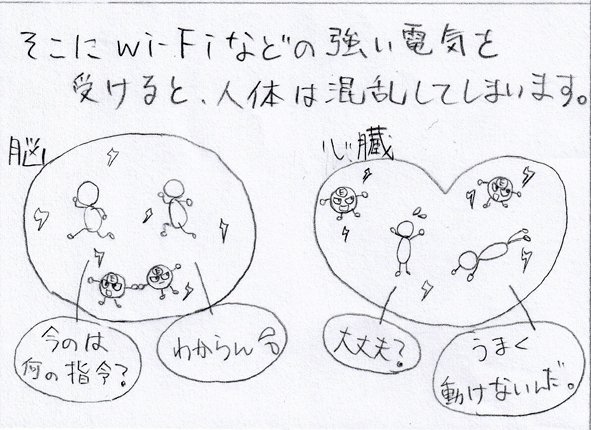 そこにWi-Fiなどの強い電気を
受けると、人体は混乱してしまいます。
脳
心臓
今のは
何の指令?
わからん
大丈夫?
うまく
動けないんだ。